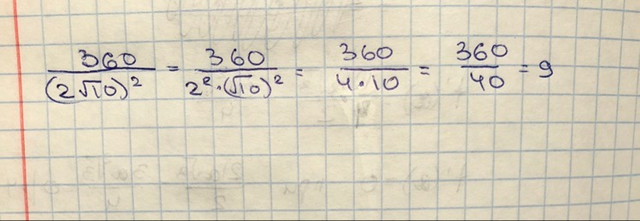 360/(2√10)² = 360/2²·(√10)² = 360/4·10 = 360/40 = 9